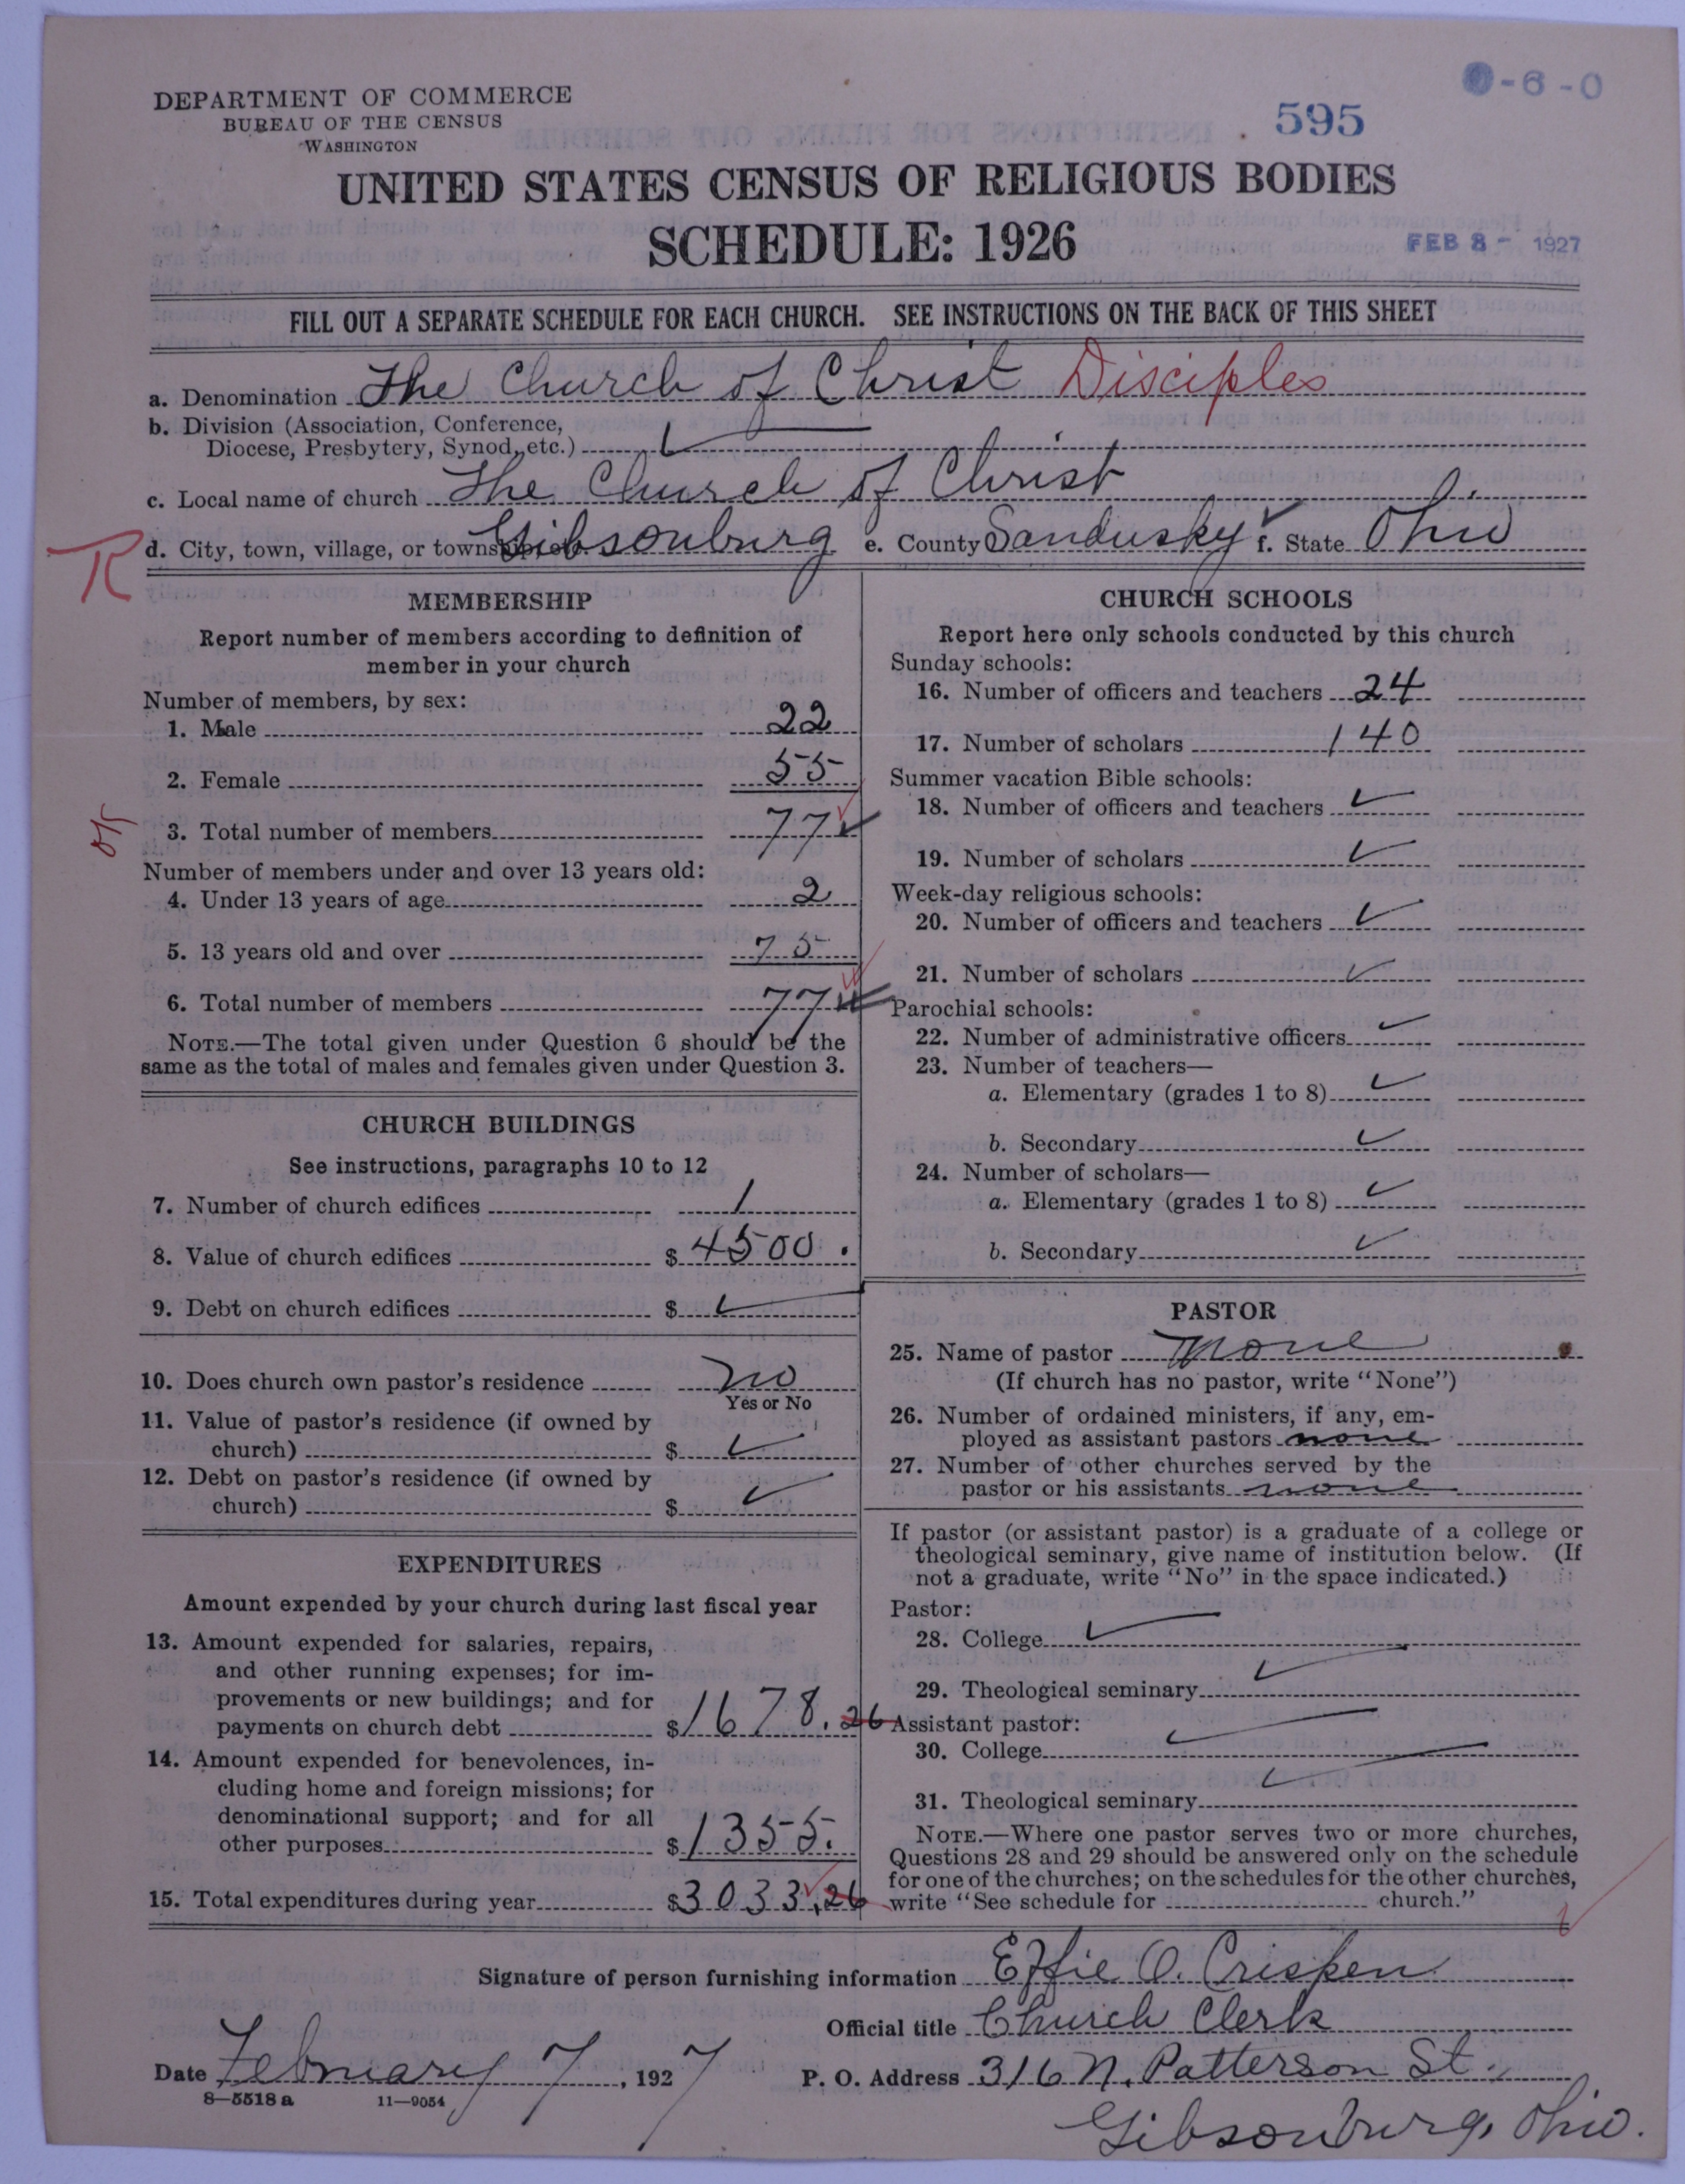 DEPARTMENT OF COMMERCE
BUREAU OF THE CENSUS
WASHINGTON
-6-0
595
UNITED STATES CENSUS OF RELIGIOUS BODIES
SCHEDULE: 1926
FEB 8 - 1927
FILL OUT A SEPARATE SCHEDULE FOR EACH CHURCH. SEE INSTRUCTIONS ON THE BACK OF THIS SHEET
a. Denomination The Church of Christ Disciples
b. Division (Association, Conference,
Diocese, Presbytery, Synod, etc.)
c. Local name of church The Church of Christ
R d. City, town, village, or township Gibsonburg e. County Sandusky f. State Ohio
MEMBERSHIP
Report number of members according to definition of
member in your church
Number of members, by sex:
1. Male 22
2. Female 55
3. Total number of members 77
Number of members under and over 13 years old:
4. Under 13 years of age 2
5. 13 years old and over 75
6. Total number of members 77
NOTE.—The total given under Question 6 should be the
same as the total of males and females given under Question 3.
CHURCH BUILDINGS
See instructions, paragraphs 10 to 12
7. Number of church edifices 1
8. Value of church edifices $ 4500.
9. Debt on church edifices $
10. Does church own pastor's residence no
Yes or No
11. Value of pastor's residence (if owned by
church) $
12. Debt on pastor's residence (if owned by
church) $
EXPENDITURES
Amount expended by your church during last fiscal year
13. Amount expended for salaries, repairs,
and other running expenses; for im-
provements or new buildings; and for
payments on church debt $1678.26
14. Amount expended for benevolences, in-
cluding home and foreign missions; for
denominational support; and for all
other purposes $1355.
15. Total expenditures during year $3033.26
CHURCH SCHOOLS
Report here only schools conducted by this church
Sunday schools:
16. Number of officers and teachers 24
17. Number of scholars 140
Summer vacation Bible schools:
18. Number of officers and teachers
19. Number of scholars
Week-day religious schools:
20. Number of officers and teachers
21. Number of scholars
Parochial schools:
22. Number of administrative officers
23. Number of teachers—
a. Elementary (grades 1 to 8)
b. Secondary
24. Number of scholars—
a. Elementary (grades 1 to 8)
b. Secondary
PASTOR
25. Name of pastor None
(If church has no pastor, write "None")
26. Number of ordained ministers, if any, em-
ployed as assistant pastors none
27. Number of other churches served by the
pastor or his assistants none
If pastor (or assistant pastor) is a graduate of a college or
theological seminary, give name of institution below. (If
not a graduate, write "No" in the space indicated.)
Pastor:
28. College
29. Theological seminary
Assistant pastor:
30. College
31. Theological seminary
NOTE.—Where one pastor serves two or more churches,
Questions 28 and 29 should be answered only on the schedule
for one of the churches; on the schedules for the other churches,
write "See schedule for church."
Signature of person furnishing information Effie O. Crisken
Official title Church Clerk
Date February 7, 1927 P. O. Address 316 N. Patterson St.,
8—5518 a 11—9054
Gibsonburg, Ohio.